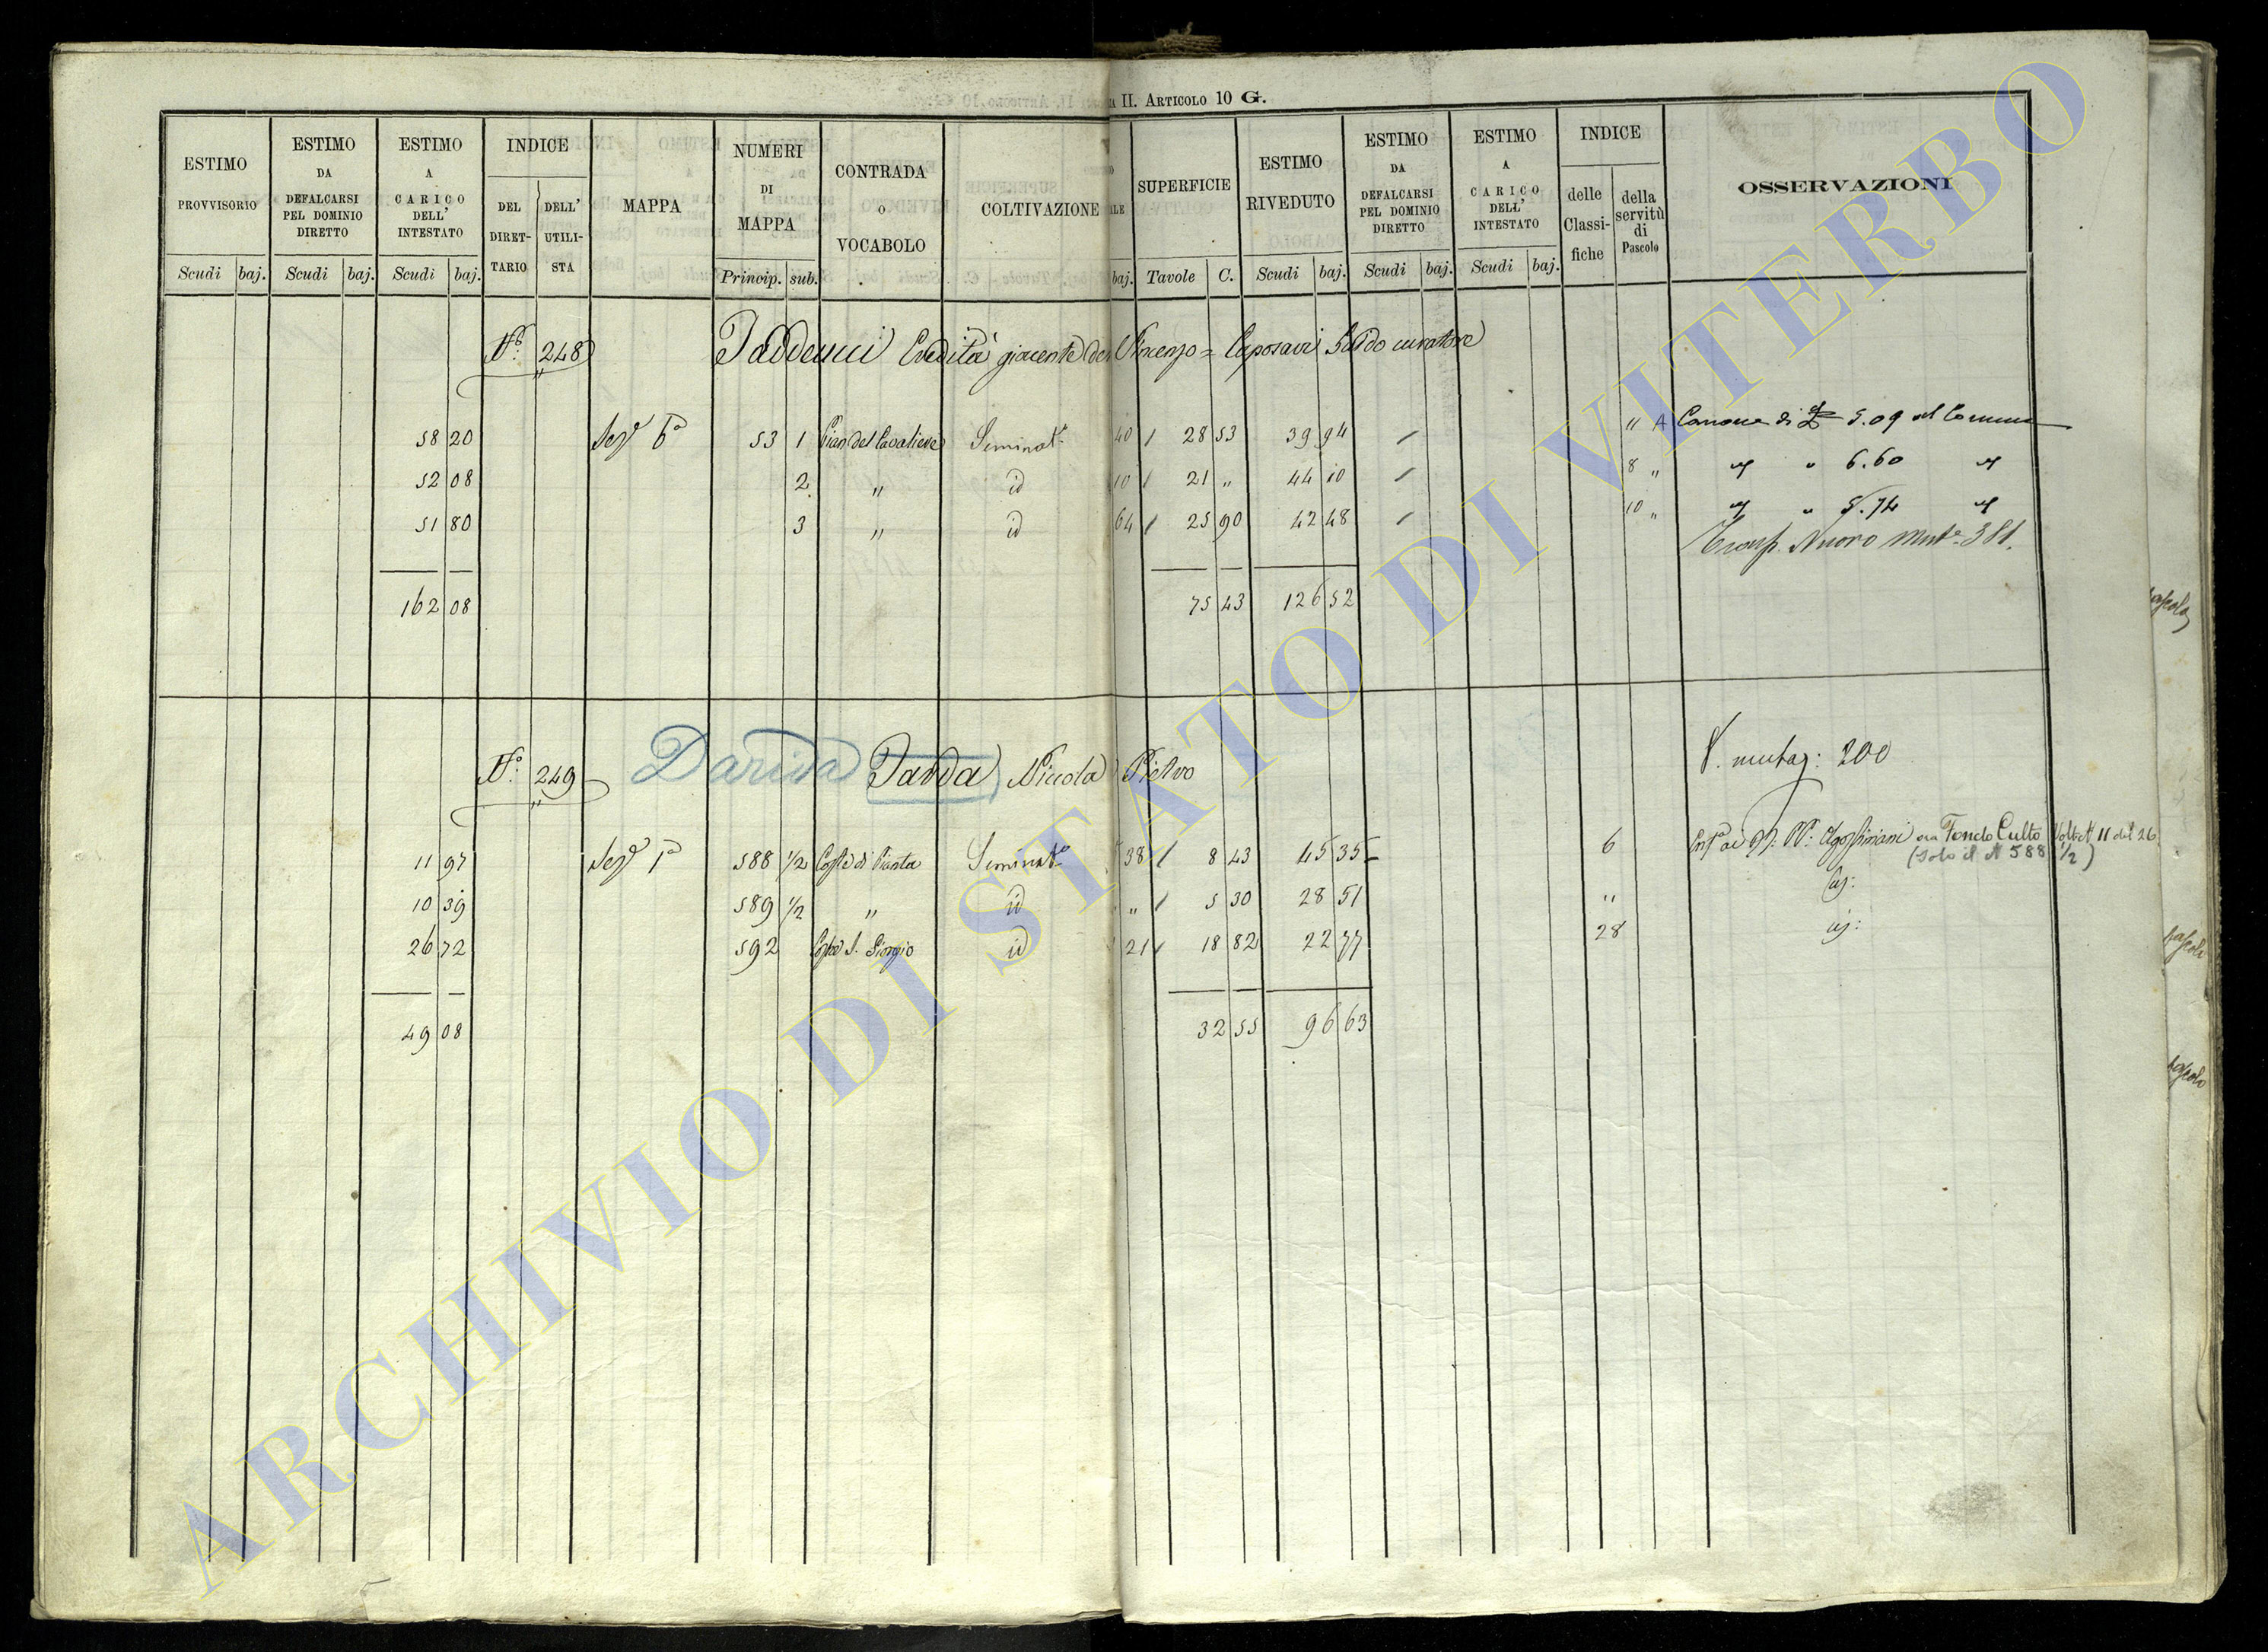 II. Articolo 10 G.
ESTIMO PROVVISORIO
Scudi baj.
ESTIMO DA DEFALCARSI PEL DOMINIO DIRETTO
Scudi baj.
ESTIMO A CARICO DELL' INTESTATO
Scudi baj.
INDICE
DEL DIRET-TARIO
DELL' UTILI-STA
MAPPA
NUMERI DI MAPPA
Princip. sub.
CONTRADA o VOCABOLO
COLTIVAZIONE
ALE
baj.
SUPERFICIE
Tavole C.
ESTIMO RIVEDUTO
Scudi baj.
ESTIMO DA DEFALCARSI PEL DOMINIO DIRETTO
Scudi baj.
ESTIMO A CARICO DELL' INTESTATO
Scudi baj.
INDICE
delle Classi-fiche
della servitù di Pascolo
OSSERVAZIONI
N.º 248 Taddeucci Eredità giacente del Vincenzo = curatore
58 20 Sezº 6ª 53 1 Pian del Cavaliere Seminatº 40 28 53 39 94 " A Canone di 5.09 al Comune
52 08 2 " id 10 21 " 44 10 8 " " 6.60
51 80 3 " id 64 25 90 42 48 10 " " 5.74
Nuovo 381.
162 08 75 43 126 52
N.º 249 Darida Darda Niccola Pietro V. mutaz: 200
11 97 Sezº 1ª 588 1/2 Coste di Pianta Seminatº 38 8 43 45 35 6 Agostiniani ora Fondo Culto Volt. N 11 del 26
(solo il N 588 1/2)
10 39 589 1/2 " id " 5 30 28 51 "
26 72 592 S. Giorgio id 21 18 82 22 77 28
49 08 32 55 96 63
pascolo
pascolo
pascolo
ARCHIVIO DI STATO DI VITERBO